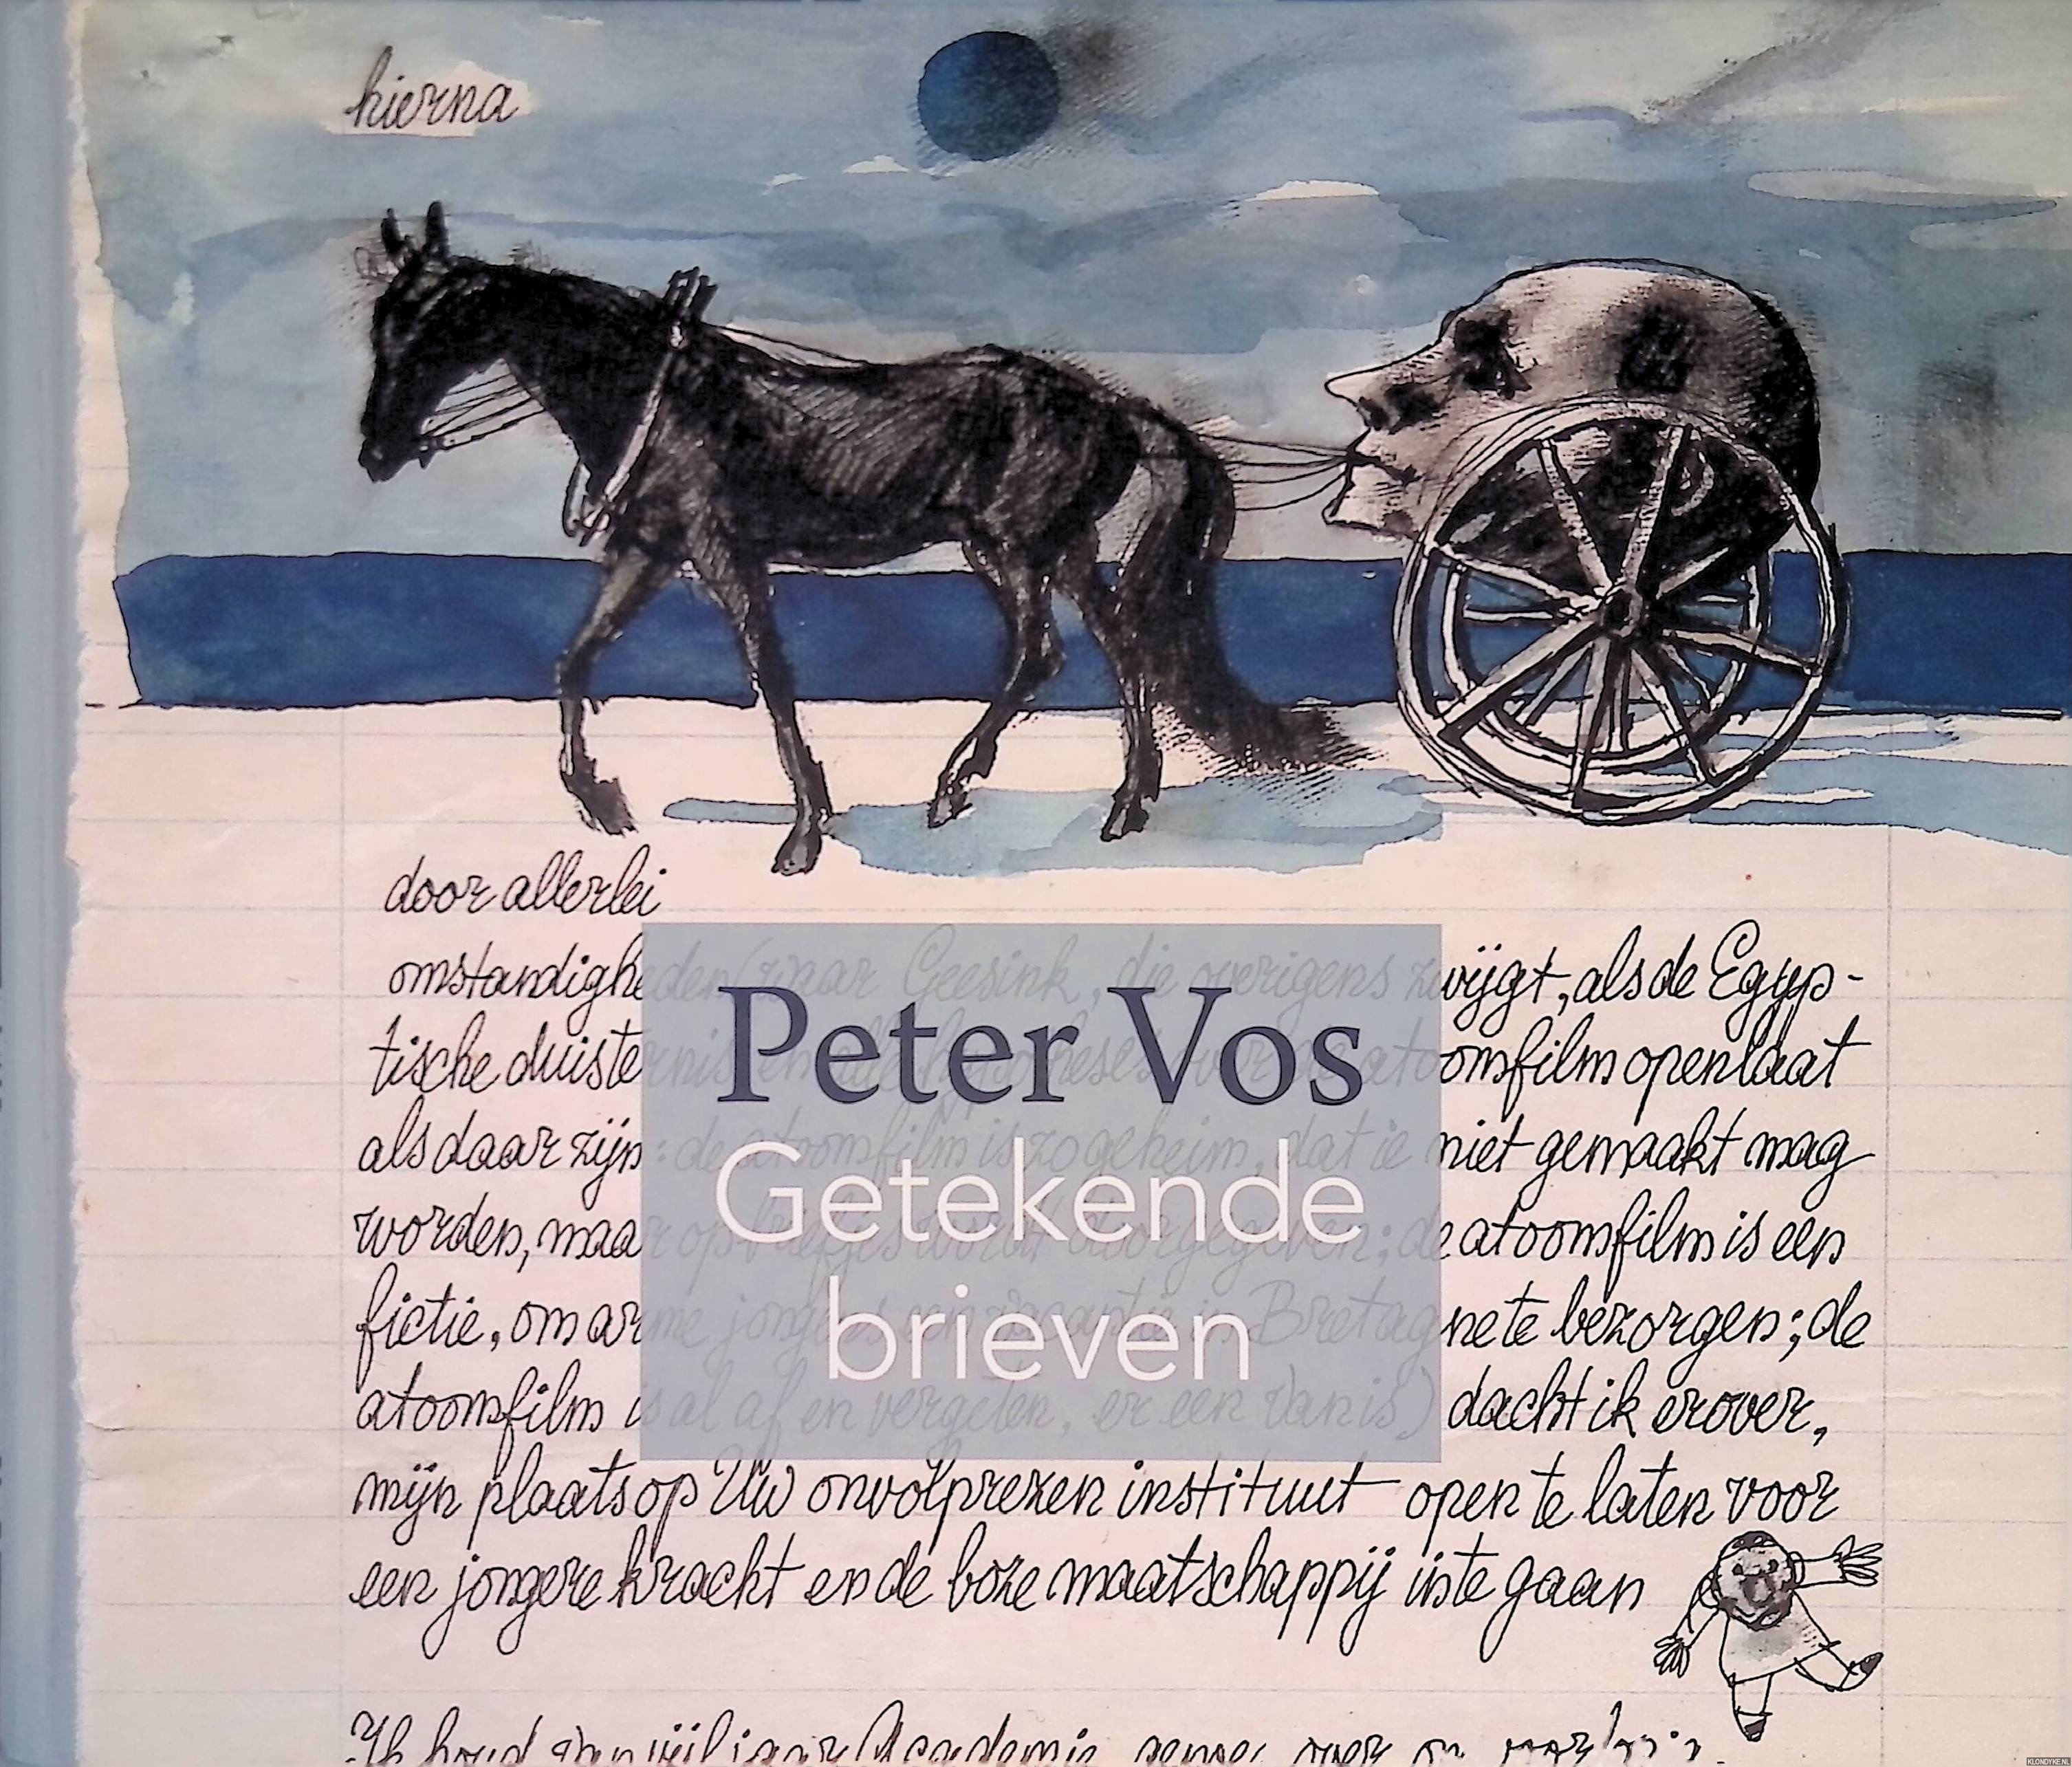 hierna
door allerlei
omstandigheden (waar Geesink, die overigens zwijgt, als de Egyp-
tische duisternis en alle hypotheses over de atoomfilm openlaat
als daar zijn: de atoomfilm is zo geheim, dat ie niet gemaakt mag
worden, maar op briefjes wordt doorgegeven; de atoomfilm is een
fictie, om arme jongens een vacantie in Bretagne te bezorgen; de
atoomfilm is al af en vergeten, er een van is) dacht ik erover,
mijn plaats op Uw onvolprezen instituut open te laten voor
een jongere kracht en de boze maatschappij in te gaan
Peter Vos
Getekende
brieven
Ik houd van vijf jaar Academie
KLONDYKE.NL